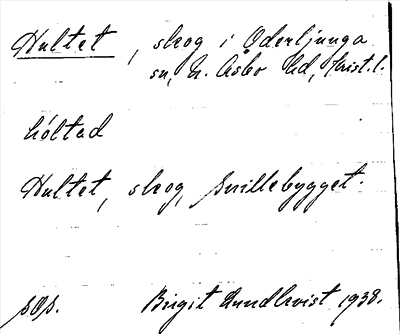 Hultet, skog i Oderljunga
sn, N. Åsbo hd, Krist. l.
hóltad
Hultet, skog, Snillebygget.
sOp. Birgit Lundkvist 1938.